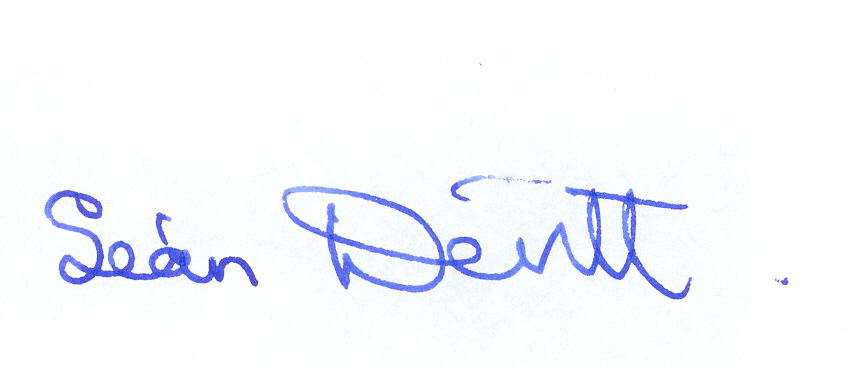 Seán Devitt